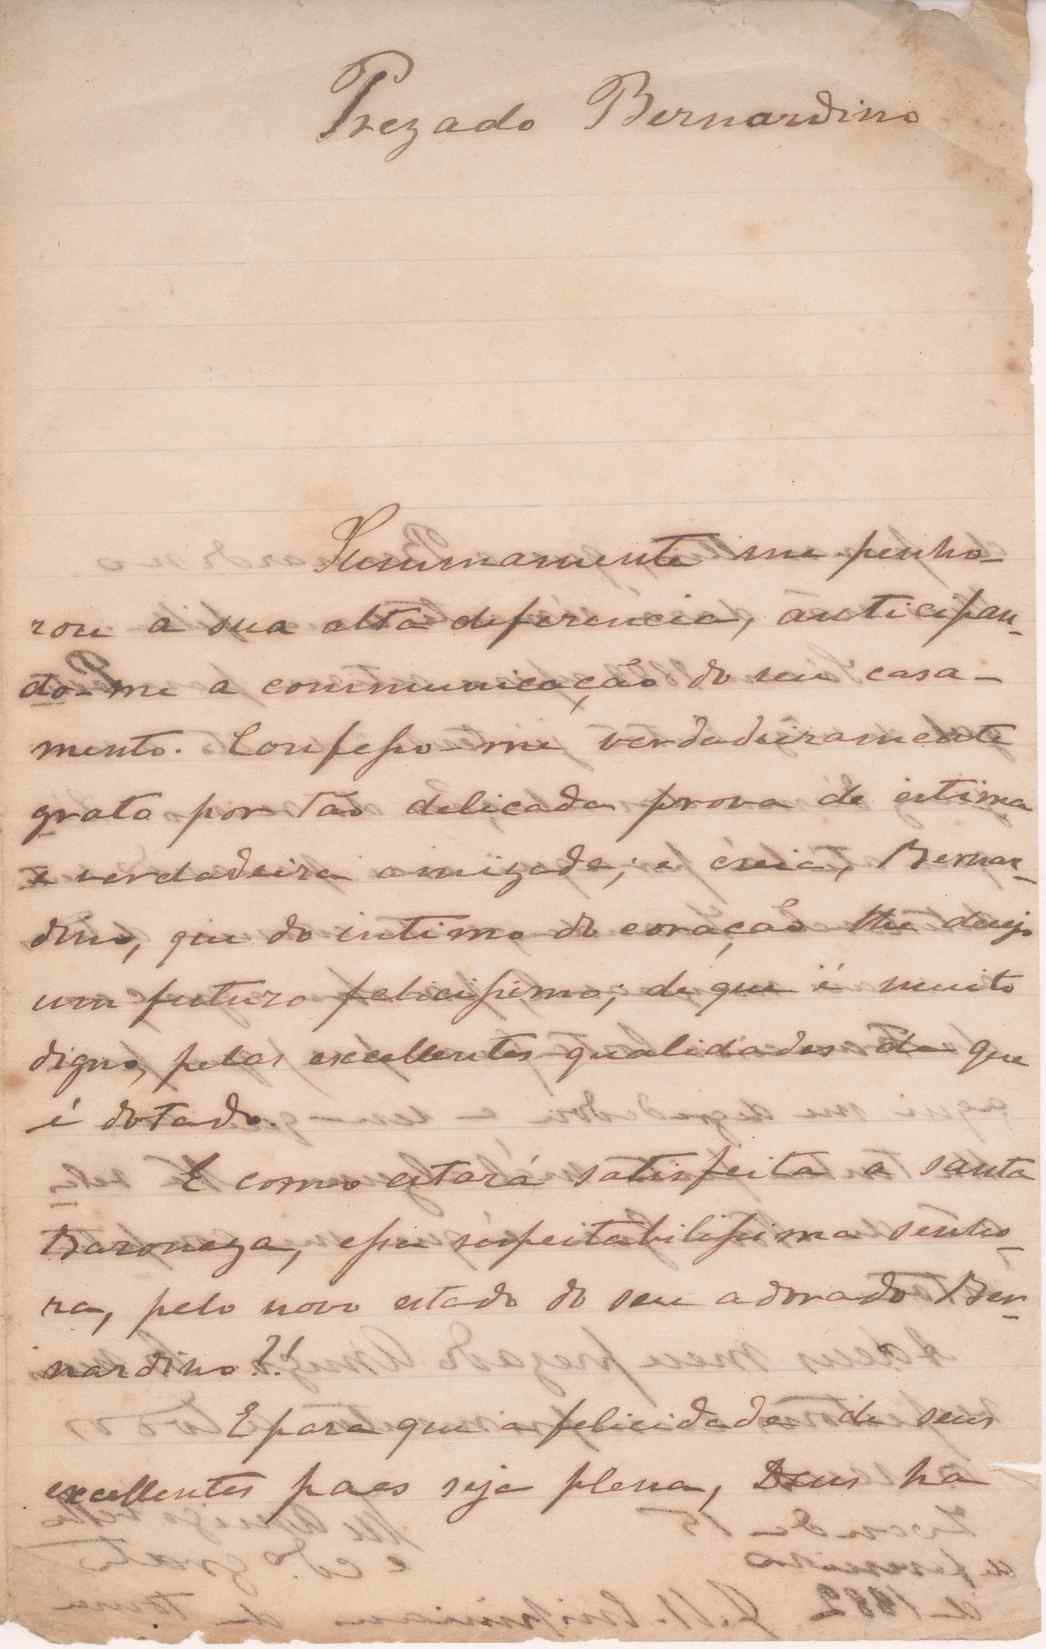 Prezado Bernardino
Summamente me penho-
rou a sua alta deferencia, anticipan-
do-me a communicação do seu casa-
mento. Confesso-me verdadeiramente
grato por tão delicada prova de estima
e verdadeira amizade; e creia, Bernar-
dino, que do intimo do coração lhe desejo
um futuro felicissimo; de que é muito
digno, pelas excellentes qualidades de que
é dotado.
E como estará satisfeita a santa
Baroneza, essa respeitabilissima senho-
ra, pelo novo estado do seu adorado Ber-
nardino?!
E para que a felicidade de seus
excellentes paes seja plena, Deus ha